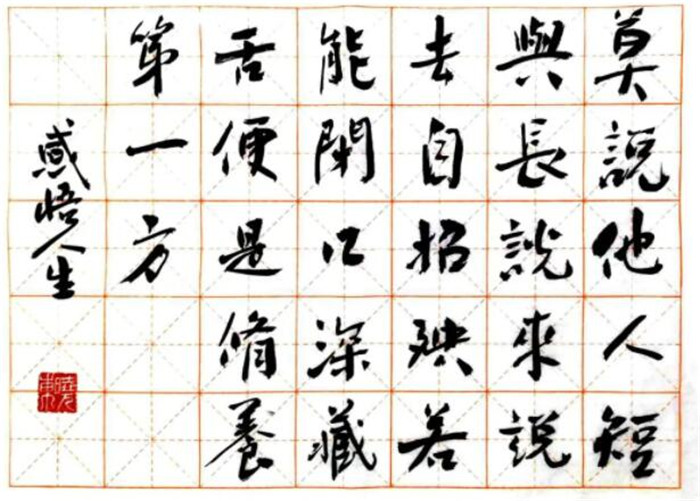 莫說他人短
與長說來說
去自招殃若
能閉口深藏
舌便是脩養
第一方
感悟人生